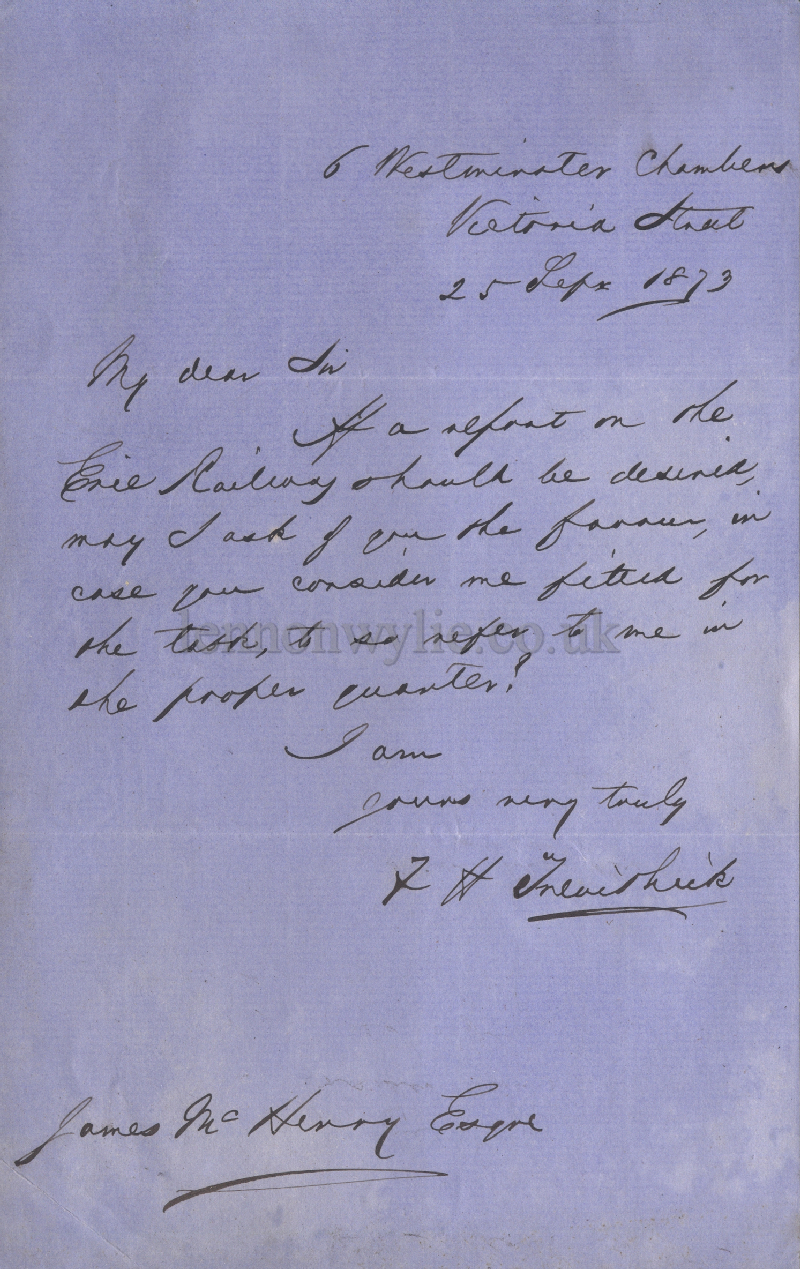 6 Westminster Chambers
Victoria Street
25 Sept 1873
My dear Sir
If a report on the
Erie Railway should be desired,
may I ask of you the favour, in
case you consider me fitted for
the task, to so refer to me in
the proper quarter?
I am
yours very truly
F H Trevithick
James Mc Henry Esqre
lennonwylie.co.uk